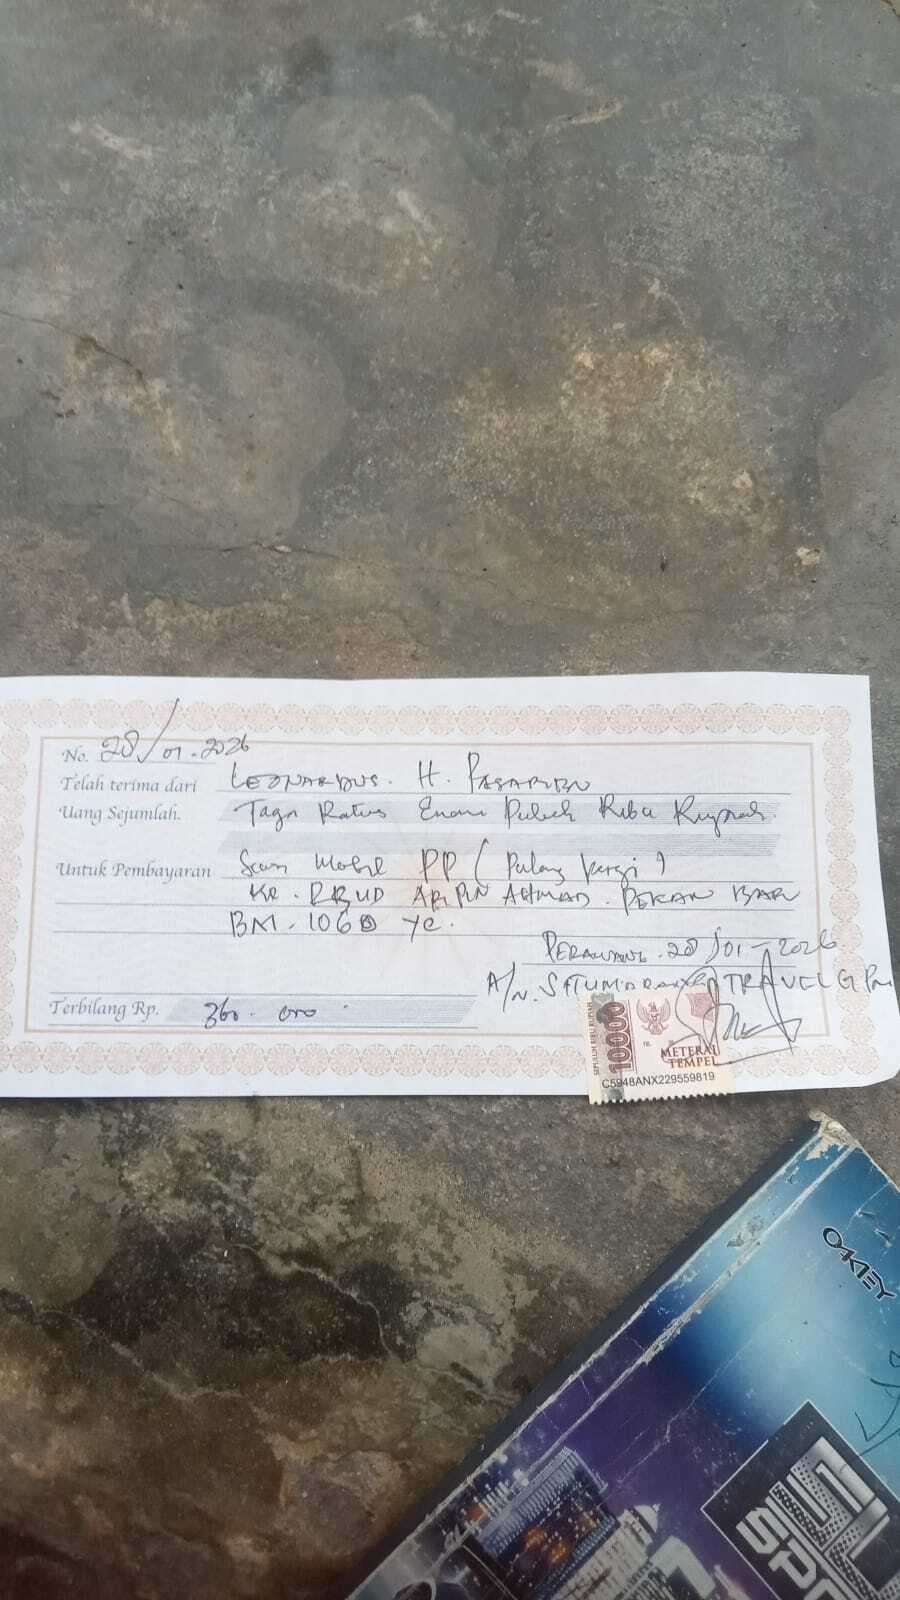 No. 28/01-2026
Telah terima dari LEONARDUS. H. PASARIBU
Uang Sejumlah. Tiga Ratus Enam Puluh Ribu Rupiah.
Untuk Pembayaran Sewa Mobil PP (Pulang Pergi)
KE. RSUD ARIFIN ACHMAD. PEKAN BARU
BM. 1060 YC.
PERAWANG. 28/01-2026
A/N. TRAVEL
Terbilang Rp. 360.000
SEPULUH RIBU RUPIAH
10000
METERAI
TEMPEL
C5948ANX229559819
OAKLEY